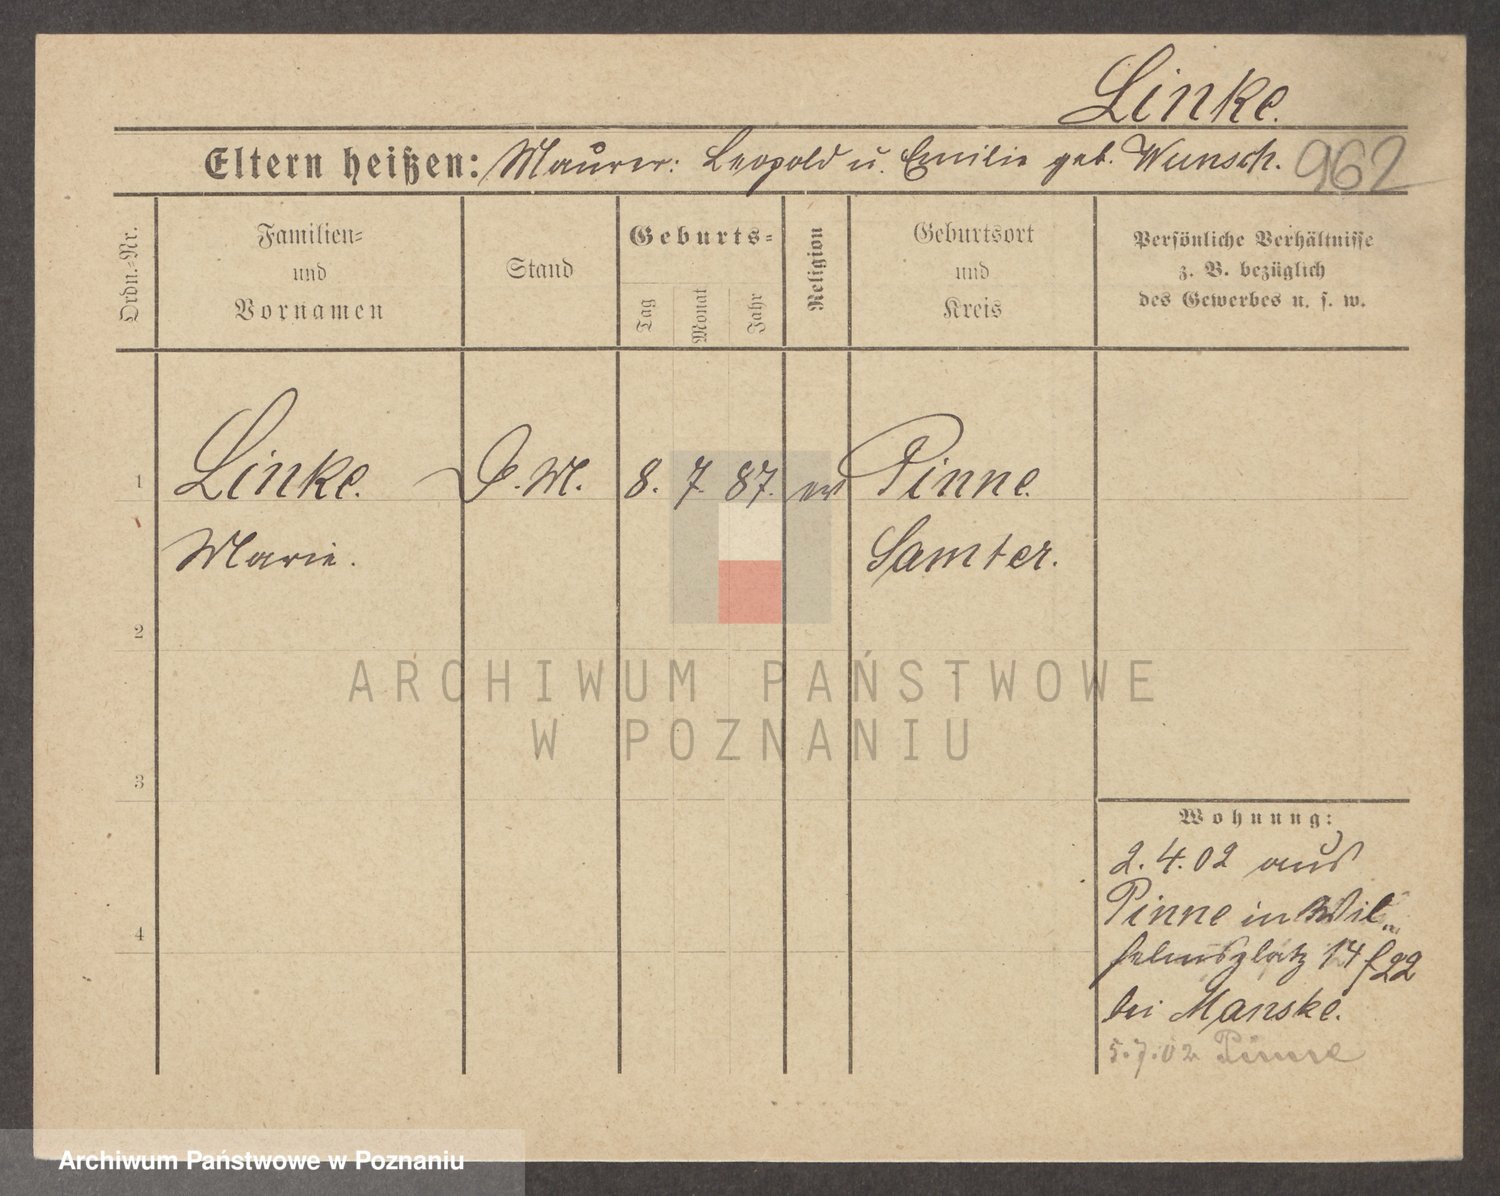 Linke.
Eltern heißen: Maurer: Leopold u. Emilie geb. Wunsch. 962
Ordn.-Nr.
Familien-
und
Vornamen
Stand
Geburts-
Tag
Monat
Jahr
Religion
Geburtsort
und
Kreis
Persönliche Verhältnisse
z. B. bezüglich
des Gewerbes u. s. w.
1 Linke. D. M. 8. 7. 87. ev Pinne.
Marie. Samter.
2
3
4
Wohnung:
2.4.02 aus
Pinne in Wil-
helmsplatz 14
bei Manske.
5.7.02 Pinne
ARCHIWUM PAŃSTWOWE
W POZNANIU
Archiwum Państwowe w Poznaniu